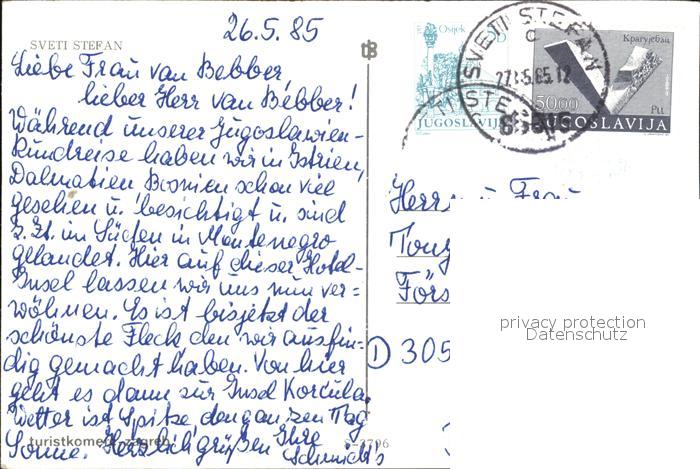 26.5.85
SVETI STEFAN
Liebe Frau van Bebber,
lieber Herr van Bebber!
Während unserer Jugoslawien-
Rundreise haben wir in Istrien,
Dalmatien Bosnien schon viel
gesehen u. besichtigt u. sind
z. Zt. im Süden in Montenegro
gelandet. Hier auf dieser Hotel-
Insel lassen wir uns nun ver=
wöhnen. Es ist bisjetzt der
schönste Fleck den wir ausfin-
dig gemacht haben. Von hier
geht es dann zur Insel Korčula.
Wetter ist Spitze, den ganzen Tag
Sonne. Herzlich grüßen Ihre
Schmidt's
turistkomerc-zagreb
Osijek
JUGOSLAVIJA
Крагујевац
50.00
JUGOSLAVIJA
SVETI STEFAN
C
27.5.85.12
Herrn u. Frau
Förs
D 305
privacy protection
Datenschutz